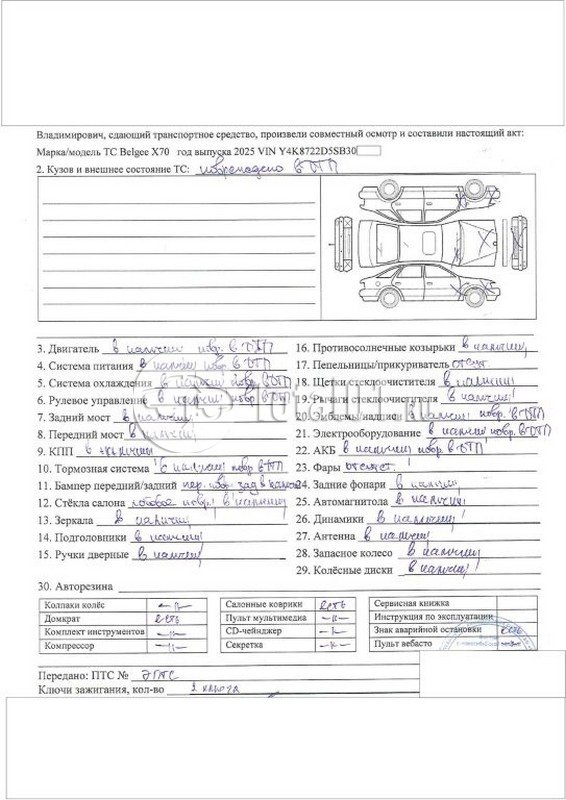 Владимирович, сдающий транспортное средство, произвели совместный осмотр и составили настоящий акт:
Марка/модель ТС Belgee X70 год выпуска 2025 VIN Y4K8722D5SB30
2. Кузов и внешнее состояние ТС: повреждено в ДТП
3. Двигатель в наличии повр. в ДТП
4. Система питания в наличии повр. в ДТП
5. Система охлаждения в наличии повр. в ДТП
6. Рулевое управление в наличии повр. в ДТП
7. Задний мост в наличии
8. Передний мост в наличии
9. КПП в наличии
10. Тормозная система в наличии повр. в ДТП
11. Бампер передний/задний пер. повр. зад в налич
12. Стёкла салона лобовое повр. в наличии
13. Зеркала в наличии
14. Подголовники в наличии
15. Ручки дверные в наличии
16. Противосолнечные козырьки в наличии
17. Пепельницы/прикуриватель отсут.
18. Щетки стеклоочистителя в наличии
19. Рычаги стеклоочистителя в наличии
20. Эмблемы/надписи в наличии повр. в ДТП
21. Электрооборудование в наличии повр. в ДТП
22. АКБ в наличии повр. в ДТП
23. Фары отсутст.
24. Задние фонари в наличии
25. Автомагнитола в наличии
26. Динамики в наличии
27. Антенна в наличии
28. Запасное колесо в наличии
29. Колёсные диски в наличии
30. Авторезина
Колпаки колёс
Домкрат есть
Комплект инструментов
Компрессор
Салонные коврики есть
Пульт мультимедиа
CD-чейнджер
Секретка
Сервисная книжка
Инструкция по эксплуатации
Знак аварийной остановки есть
Пульт вебасто
Передано: ПТС № ЭПТС
Ключи зажигания, кол-во ключа